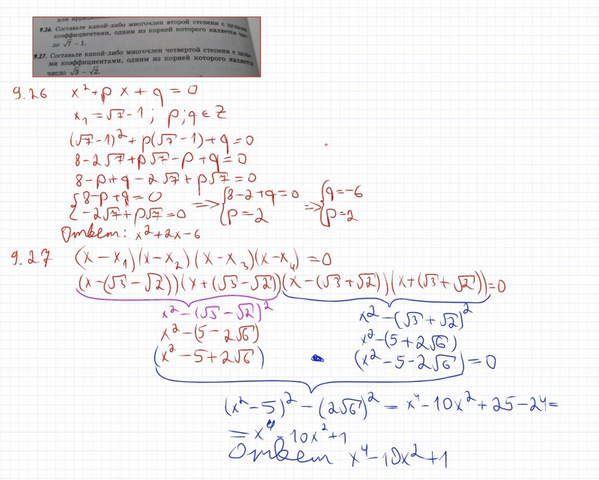 9.26. Составьте какой-либо многочлен второй степени с целыми
коэффициентами, одним из корней которого является чис-
ло √7 − 1.
9.27. Составьте какой-либо многочлен четвертой степени с целы-
ми коэффициентами, одним из корней которого является
число √3 − √2.
9.26 x² + p x + q = 0
x₁ = √7 - 1 ; p; q ∈ Z
(√7 - 1)² + p(√7 - 1) + q = 0
8 - 2√7 + p√7 - p + q = 0
8 - p + q - 2√7 + p√7 = 0
{ 8 - p + q = 0 => { 8 - 2 + q = 0 => { q = -6
{ -2√7 + p√7 = 0 { p = 2 { p = 2
Ответ: x² + 2x - 6
9.27 (x - x₁)(x - x₂)(x - x₃)(x - x₄) = 0
(x - (√3 - √2))(x + (√3 - √2))(x - (√3 + √2))(x + (√3 + √2)) = 0
x² - (√3 - √2)² x² - (√3 + √2)²
x² - (5 - 2√6) x² - (5 + 2√6)
(x² - 5 + 2√6) · (x² - 5 - 2√6) = 0
(x² - 5)² - (2√6)² = x⁴ - 10x² + 25 - 24 =
= x⁴ - 10x² + 1
Ответ x⁴ - 10x² + 1